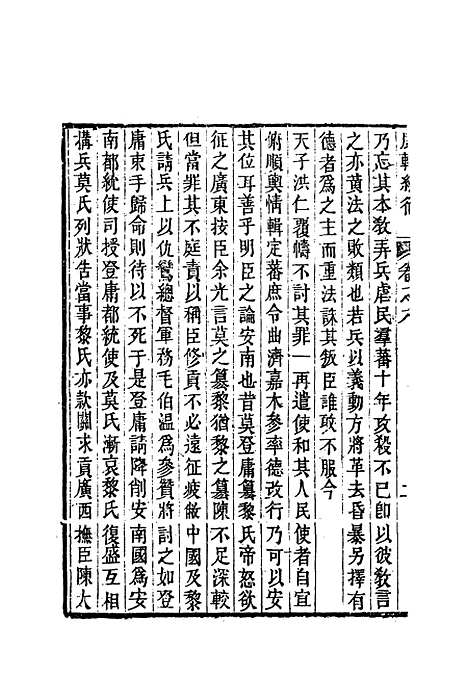 乃忘其本教弄兵虐民羣蕃十年攻殺不已即以彼教言
之亦黄法之敗類也若兵以義動方將革去昏暴另擇有
德者爲之主而重法誅其叛臣誰敢不服今
天子洪仁覆幬不討其罪一再遣使和其人民使者自宜
俯順輿情輯定蕃庶令曲濟嘉木參率德改行乃可以安
其位耳善乎明臣之論安南也昔莫登庸簒黎氏帝怒欲
征之廣東按臣余光言莫之簒黎猶黎之簒陳不足深較
但當罪其不庭責以稱臣修貢不必遠征疲敝中國及黎
氏請兵上以仇鸞總督軍務毛伯温爲參贊將討之如登
庸束手歸命則待以不死于是登庸請降削安南國爲安
南都統使司授登庸都統使及莫氏漸衰黎氏復盛互相
搆兵莫氏列狀告當事黎氏亦款關求貢廣西撫臣陳大